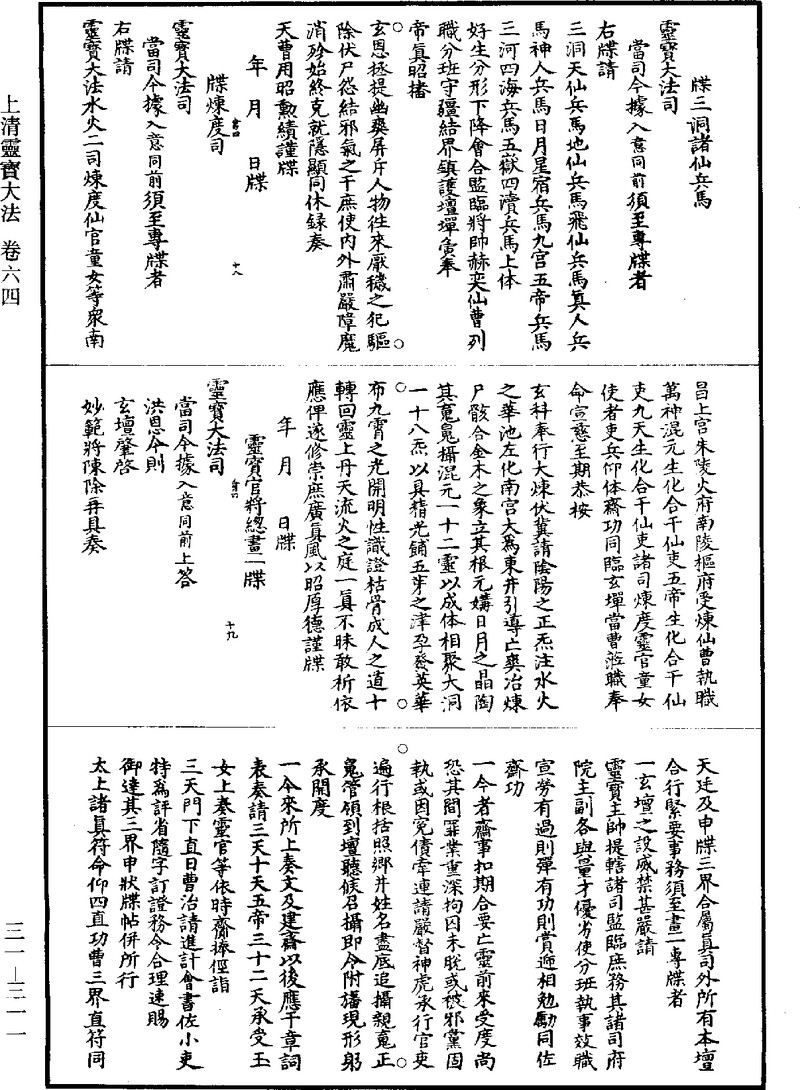 上清靈寶大法 卷六四
三一—三一一
牒三洞諸仙兵馬
靈寶大法司
當司今據入意同前須至專牒者
右牒請
三洞天仙兵馬地仙兵馬飛仙兵馬真人兵
馬神人兵馬日月星宿兵馬九宮五帝兵馬
三河四海兵馬五嶽四瀆兵馬上体
好生分形下降會合監臨將帥赫奕仙曹列
職分班守疆結界鎮護壇墠僉奉
帝真昭播
玄恩拯提幽爽屏斥人物往來厭穢之犯驅
除伏尸忿結邪氣之干庶使內外肅嚴障魔
消殄始終克就隱顯同休録奏
天曹用昭勳績謹牒
年 月 日牒
牒煉度司
十八
靈寶大法司
當司今據入意同前須至專牒者
右牒請
靈寶大法水火二司煉度仙官童女等眾南
昌上宮朱陵火府南陵樞府受煉仙曹執職
萬神混元生化合干仙吏五帝生化合干仙
吏九天生化合干仙吏諸司煉度靈官童女
使者吏兵仰体齋功同臨玄墠當曹蒞職奉
命宣慈至期恭按
玄科奉行大煉伏冀請陰陽之正炁注水火
之華池左化南宮大為東井引導亡爽冶煉
尸骸合金木之象立其根元媾日月之晶陶
其䰟魄攝混元一十二靈以成体相聚大洞
一十八炁以具精光鋪五芽之津孕發英華
布九霄之光開明性識證枯骨成人之道十
轉回靈上丹天流火之庭一真不昧敢祈依
應俾遂修崇庶廣真風以昭厚德謹牒
年 月 日牒
靈寶官將總畫一牒
十九
靈寶大法司
當司今據入意同前上答
洪恩今則
玄壇肇啓
妙範將陳除再具奏
天廷及申牒三界合屬真司外所有本壇
合行緊要事務須至畫一專牒者
一玄壇之設威禁甚嚴請
靈寶主帥提轄諸司監臨庶務其諸司府
院主副各與量才優劣使分班執事效職
宣勞有過則彈有功則賞遞相勉勵同佐
齋功
一今者齋事扣期合要亡靈前來受度尚
恐其間罪業重深拘囚未脫或被邪黨固
執或因冤債牽連請嚴督神虎承行官吏
遍行根括照鄉井姓名盡底追攝親䰟正
魄管領到壇聽候召攝即令附旛現形躬
承開度
一今來所上奏文及建齋以後應干章詞
表奏請三天十天五帝三十二天承受玉
女上奏靈官等依時齎捧徑詣
三天門下直日曹治請進計會書佐小吏
特為評省隨字訂證務令合理速賜
御達其三界申狀牒帖併所行
太上諸真符命仰四直功曹三界直符同